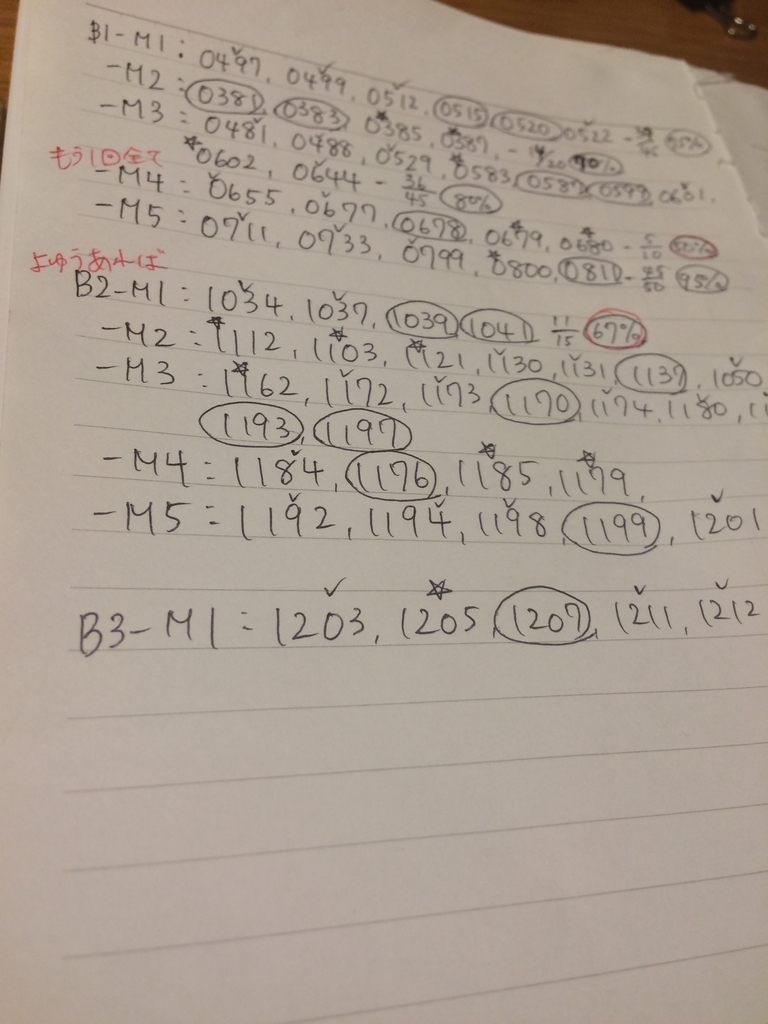 B1-M1: 0497, 0499, 0512, 0515, 0520, 0522 -
-M2: 0381, 0383, 0385, 0387, - 90%
-M3: 0481, 0488, 0529, 0583, 0587, 0599, 0601.
もう1回全て 0602, 0644 - 36/45 80%
-M4: 0655, 0677, 0678, 0679, 0680 - 5/10 50%
-M5: 0711, 0733, 0799, 0800, 0811 - 95%
よゆうあれば
B2-M1: 1034, 1037, 1039, 1041 11/15 67%
-M2: 1112, 1103, 1121, 1130, 1131, 1137, 1050,
-M3: 1162, 1172, 1173, 1170, 1174, 1180,
1193, 1197
-M4: 1184, 1176, 1185, 1179,
-M5: 1192, 1194, 1198, 1199, 1201
B3-M1: 1203, 1205, 1207, 1211, 1212